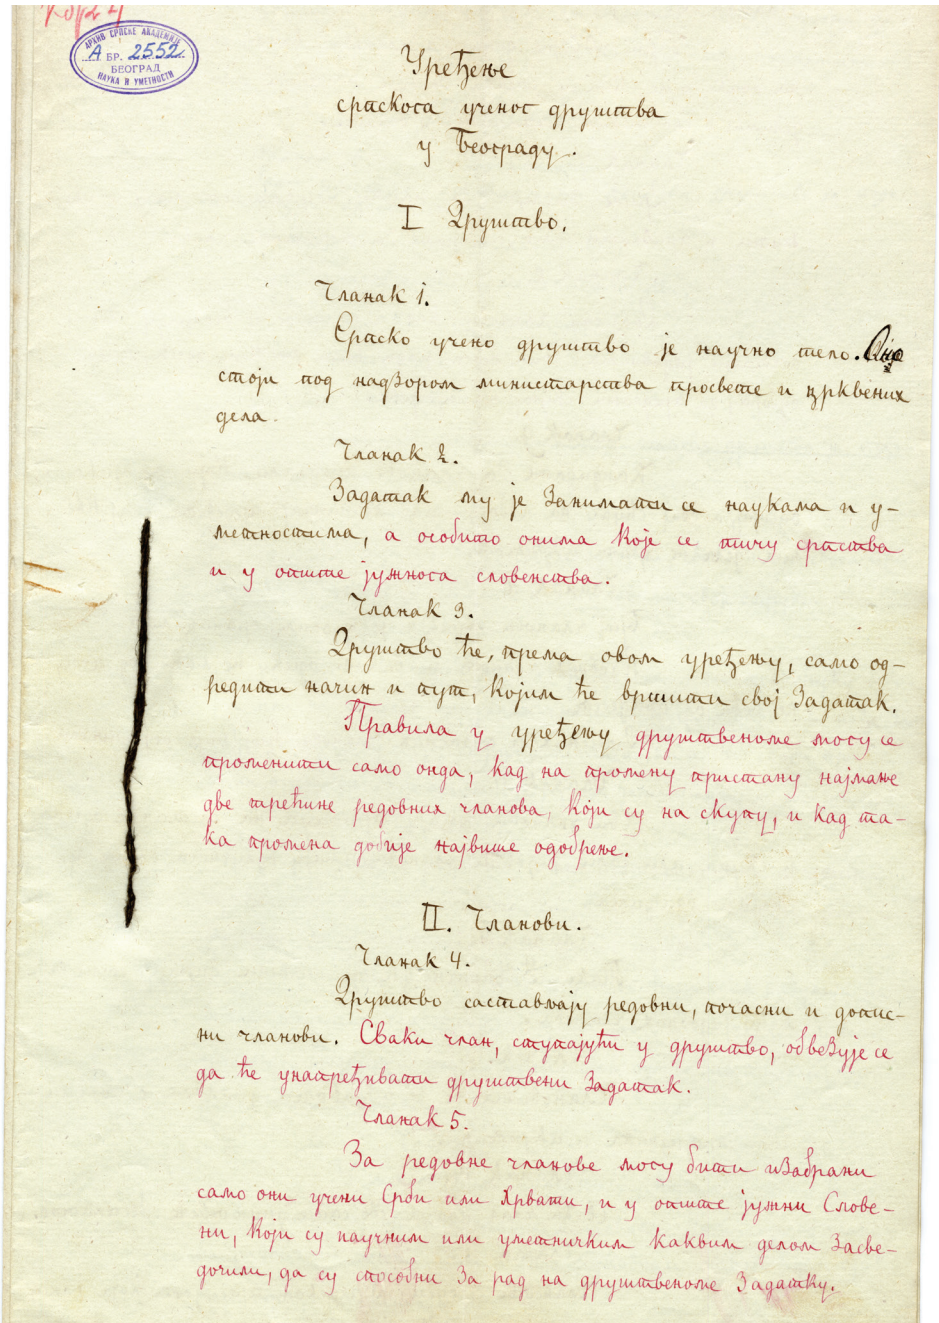 АРХИВ СРПСКЕ АКАДЕМИЈЕ
А БР. 2552
БЕОГРАД
НАУКА И УМЕТНОСТИ
Уређење
српскога ученог друштва
у Београду.
I Друштво.
Чланак 1.
Српско учено друштво је научно тело. Оно
стоји под надзором министарства просвете и црквених
дела.
Чланак 2.
Задатак му је занимати се наукама и у-
метностима, а особито онима које се тичу српства
и у опште јужнога словенства.
Чланак 3.
Друштво ће, према овом уређењу, само од-
редити начин и пут, којим ће вршити свој задатак.
Правила у уређењу друштвеноме могу се
променити само онда, кад на промену пристану најмање
две трећине редовних чланова, који су на скупу, и кад та-
ка промена добије највише одобрење.
II. Чланови.
Чланак 4.
Друштво састављају редовни, почасни и допис-
ни чланови. Сваки члан, ступајући у друштво, обвезује се
да ће унапређивати друштвени задатак.
Чланак 5.
За редовне чланове могу бити изабрани
само они учени Срби или Хрвати, и у опште јужни Слове-
ни, који су научним или уметничким каквим делом засве-
дочили, да су способни за рад на друштвеноме задатку.